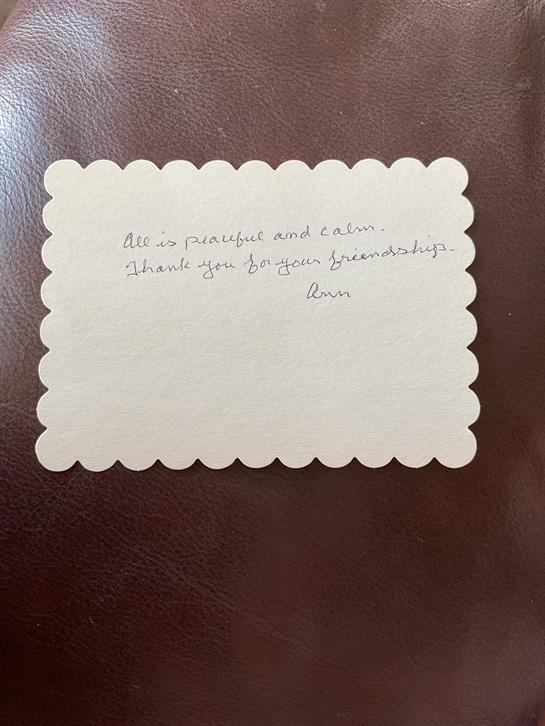 All is peaceful and calm.
Thank you for your friendship.
Ann